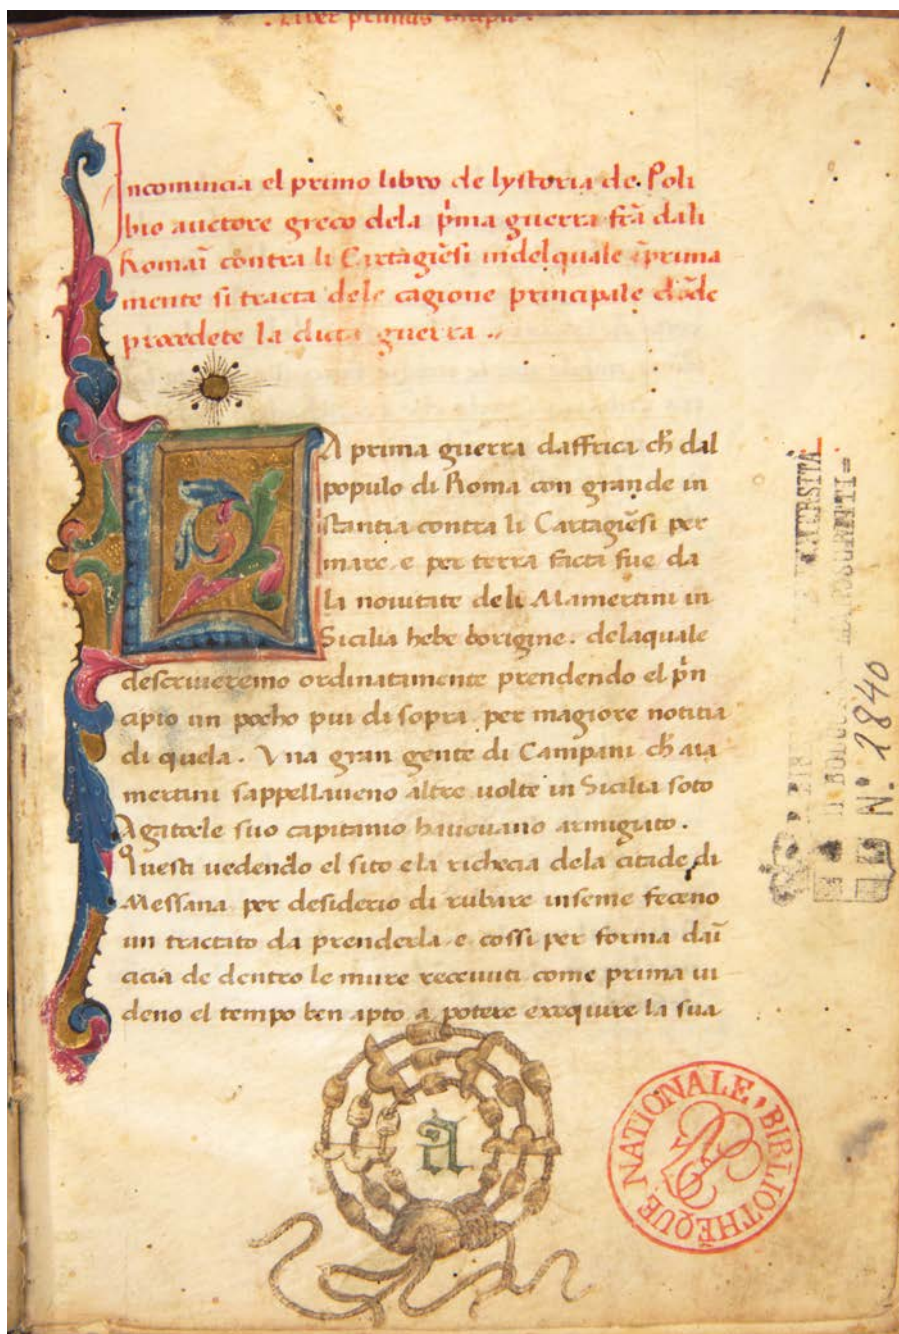 Liber primus incipit.
1
Incomincia el primo libro de lystoria de Poli
bio auctore greco dela p̃ma guerra fc̃a dali
Romaı̃ contra li Cartagiẽsi indelquale ẽprima
mente si tracta dele cagione principale dõde
procedete la dicta guerra.
La prima guerra daffrica ch̃ dal
populo di Roma con grande in
stantia contra li Cartagiẽsi per
mare e per terra facta fue da
la nouitate deli Mamertini in
Sicilia hebe borigine. delaquale
descriueremo ordinatamente prendendo el p̃n
cipio un pocho pui di sopra per magiore notitia
di quela. Vna gran gente di Campani ch̃ Ma
mertini sappellaueno altre uolte in Sicilia soto
Agatocle suo capitanio haueuano armigiato.
Questi uedendo el sito e la richecia dela citade di
Messana per desiderio di rubare inseme feceno
un tractato da prenderla e cossi per forma daı̃
cicia de dentro le mure receuuti come prima ui
deno el tempo ben apto a potere exequire la sua
a
BIBLIOTHÈQUE NATIONALE,
UNIVERSITÀ
DI BOLOGNA MANOSCRITTI=
N.º 2840